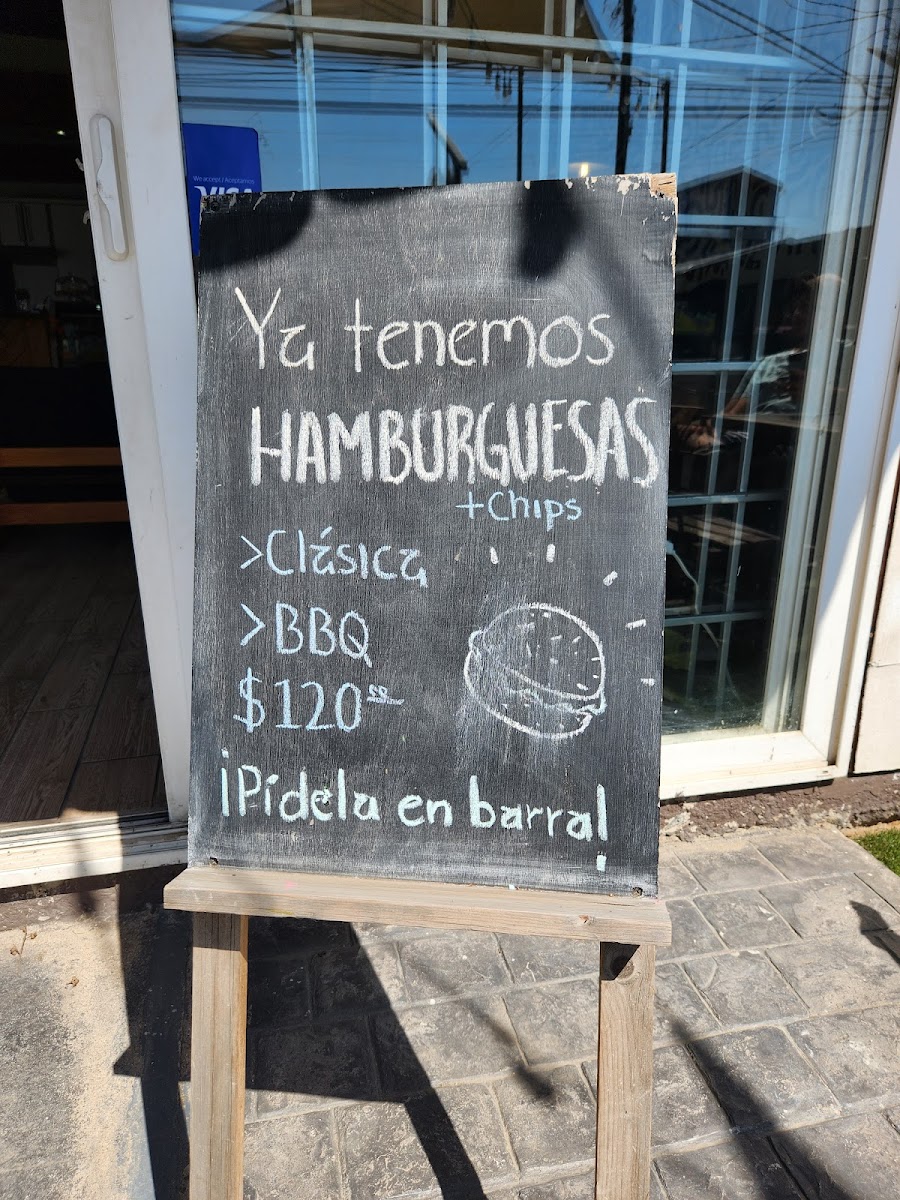 We accept / Aceptamos
VISA
Ya tenemos
HAMBURGUESAS
+Chips
>Clásica
>BBQ
$120.00
¡Pídela en barra!